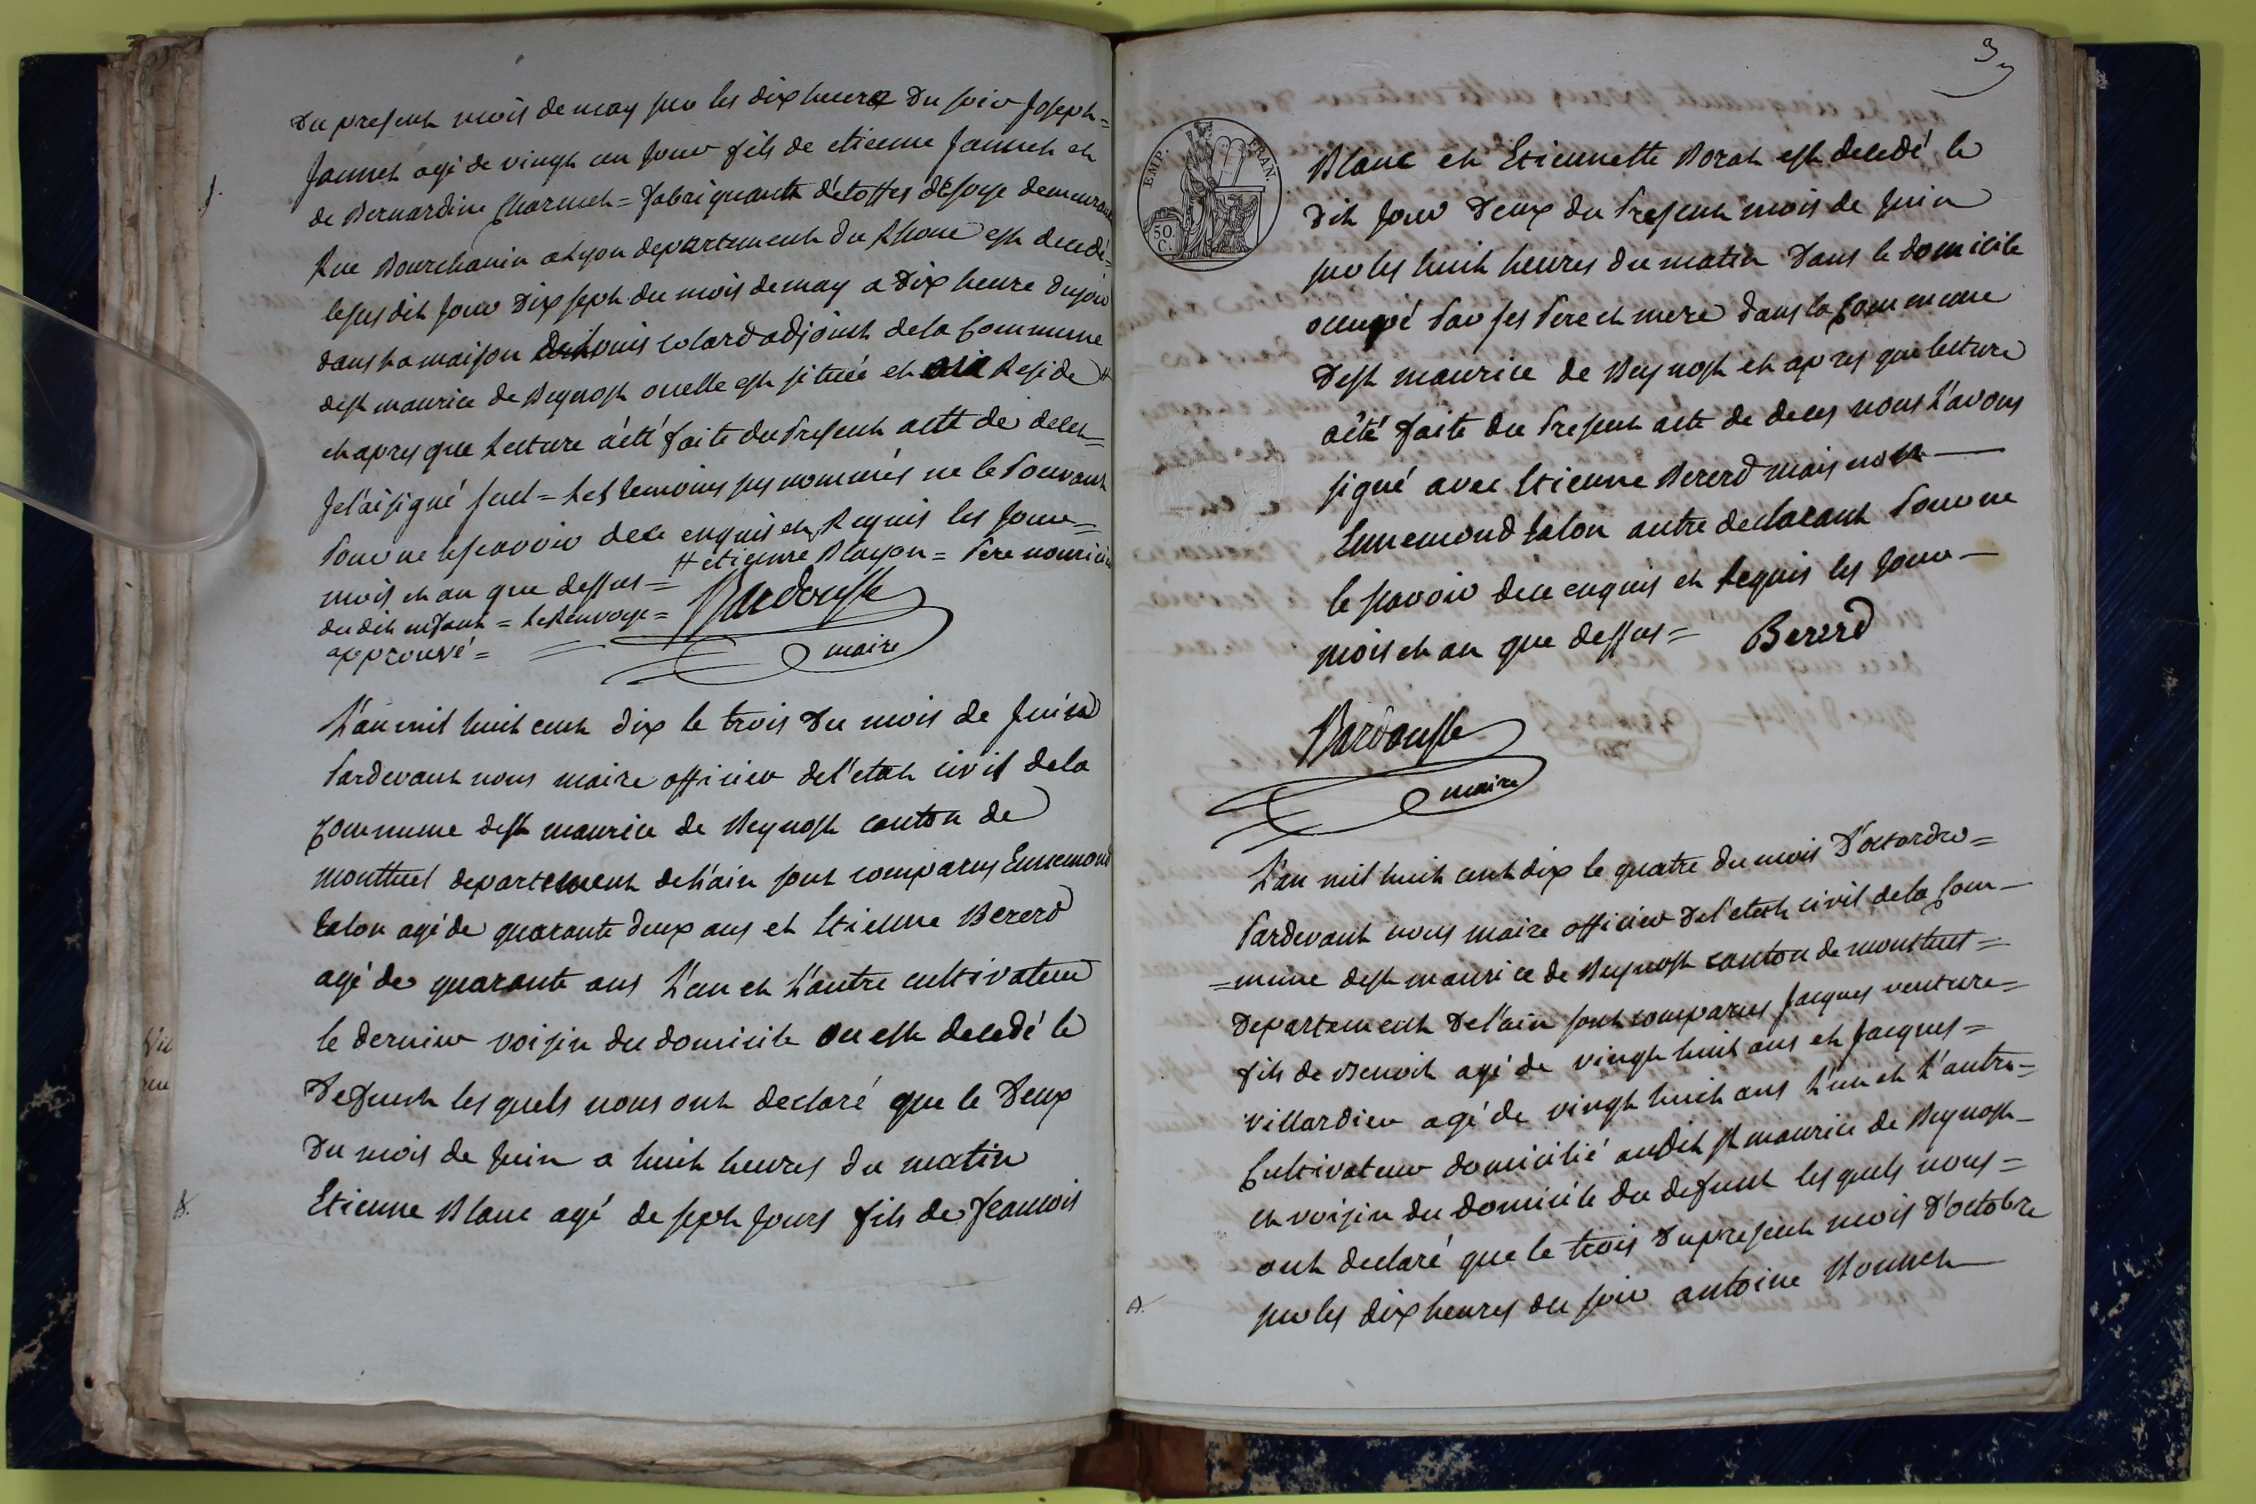 du present mois de may sur les dix heure du soir Joseph=
Jannet agé de vingt un jour fils de etienne Jannet et
de Bernardine Charmet = fabriquantt d'etoffes de soye demeurant
Rue Bourchanin a Lyon departement du Rhone est decedé=
le susdit jour dix sept du mois de may a dix heure du soir
dans la maison de Louis Colard adjoint de la Commune
de st maurice de Beynost ou elle est située et ou Reside #
et apres que Lecture a été faite du Present actte de deces=
Je l'ai signé seul = Les temoins sus nommés ne le Pouvant
Pour ne le scavoir de ce enquis et Requis les Jour=
# etienne Blayon = Pere nouricier
mois et an que dessus =
du dit enfant = Le Renvoye =
approuvé =
Bardousse
maire
f.
L'an mil huit cent dix le trois du mois de Juin
Pardevant nous maire officier de l'etat civil de la
Commune de st maurice de Beynost canton de
montluel departement de L'ain sont comparus Ennemond
talon agé de quarante deux ans et Etienne Bererd
agé de quarante ans L'un et L'autre cultivateur
le dernier voisin du domicile ou est decedé le
defunt les quels nous ont declaré que le deux
du mois de Juin a huit heures du matin
Etienne Blanc agé de sept Jours fils de francois
3
EMP. FRAN.
50. C.
Blanc et Etiennette Borat est decedé le
dit Jour deux du Present mois de Juin
sur les huit heures du matin dans le domicile
occupé Par ses Pere et mere dans la Commune
de st maurice de Beynost et apres que lecture
a été faite du Present acte de deces nous L'avons
signé avec Etienne Bererd mais non
Ennemond talon autre declarant Pour ne
le scavoir de ce enquis et Requis les Jour
mois et an que dessus = Bererd
Bardousse
maire
L'an mil huit cent dix le quatre du mois D'octordre=
Pardevant nous maire officier de l'etat civil de la Com
=mune de st maurice de Beynost canton de montluel=
departement de l'ain sont comparus Jacques venture=
fils de Benoit agé de vingt huit ans et Jacques=
villardieu agé de vingt huit ans L'un et L'autre=
Cultivateur domicilié audit st maurice de Beynost
et voisin du domicile du defunt les quels nous=
ont declaré que le trois du present mois d'octobre
sur les dix heures du soir antoine Bonnet